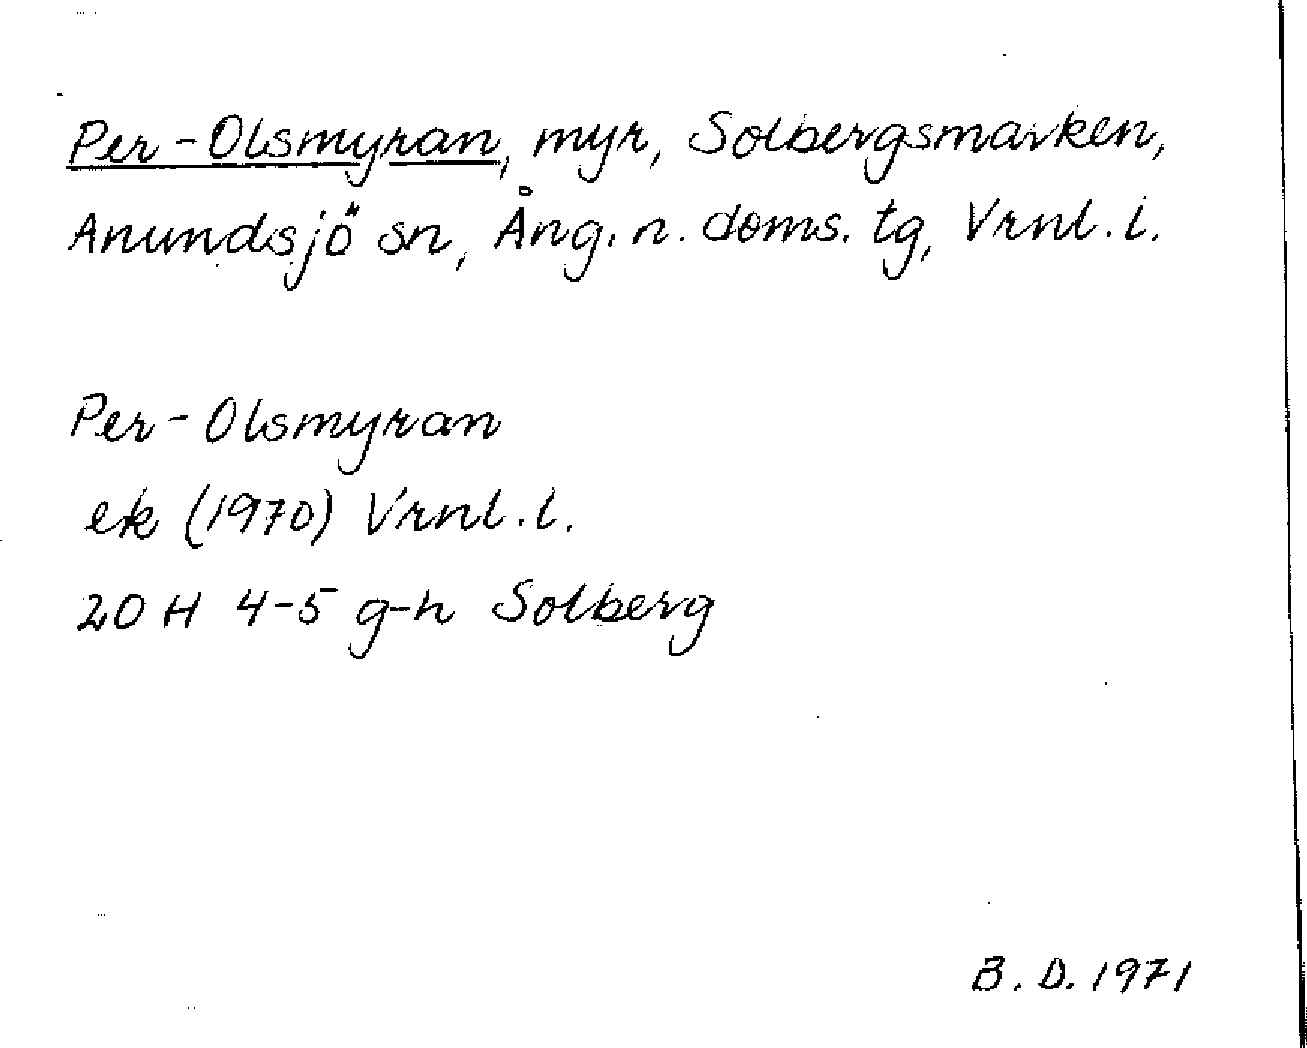 Per-Olsmyran, myr, Solbergsmarken,
Anundsjö sn, Ång. n. doms. tg, Vrnl. l.
Per-Olsmyran
ek (1970) Vrnl. l.
20 H 4-5 g-h Solberg
B. D. 1971